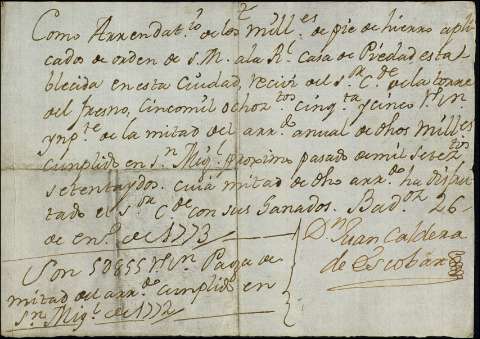 Como Arrendat.ro de los mill.es de pie de hierro apli
cados de orden de S.M. a la R.l Casa de Piedad esta
blecida en esta Ciudad, recivi del s.or C.de de la torre
del fresno, Cinco mil ochoz.tos cinq.ta y cinco r.s v.n
ymp.te de la mitad del arr.do anual de dhos mill.es
cumplido en s.n Mig.l proximo pasado de mil setez.tos
setenta y dos. cuia mitad de dho arr.do ha disfru
tado el s.or C.de con sus Ganados. Bad.oz 26
de en.o de 1773
D.n Juan Caldera
de Escobar
Son 5855 r.s v.n Paga de
mitad del arr.do cumplido en
s.n Mig.l de 1772